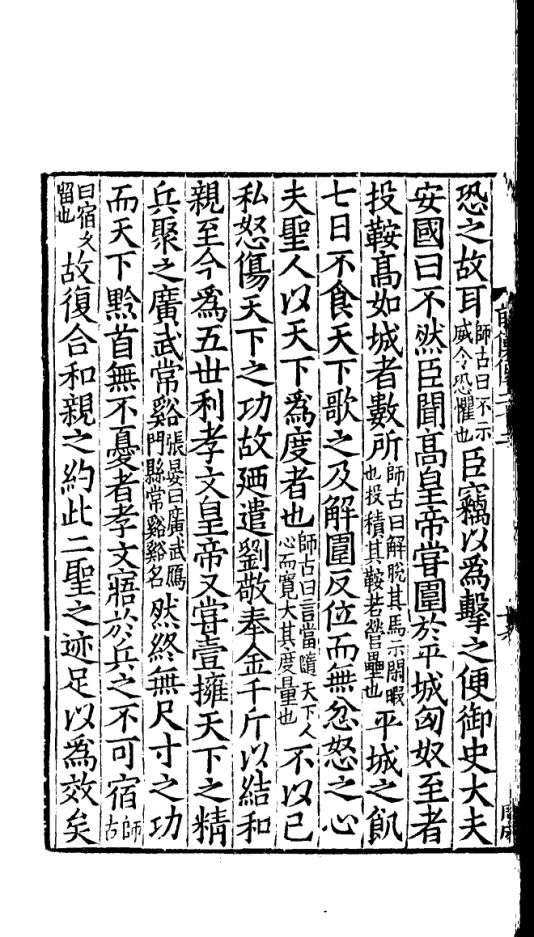 恐之故耳師古曰不示威令恐懼也臣竊以爲擊之便御史大夫
安國曰不然臣聞高皇帝甞圍於平城匈奴至者
投鞍高如城者數所師古曰解脫其馬示閑暇也投積其鞍若營壘也平城之飢
七日不食天下歌之及解圍反位而無忿怒之心
夫聖人以天下爲度者也師古曰言當隨天下人心而寬大其度量也不以己
私怒傷天下之功故廼遣劉敬奉金千斤以結和
親至今爲五世利孝文皇帝又甞壹擁天下之精
兵聚之廣武常谿張晏曰廣武鴈門縣常谿谿名然終無尺寸之功
而天下黔首無不憂者孝文寤於兵之不可宿師古
曰宿久留也故復合和親之約此二聖之迹足以爲效矣